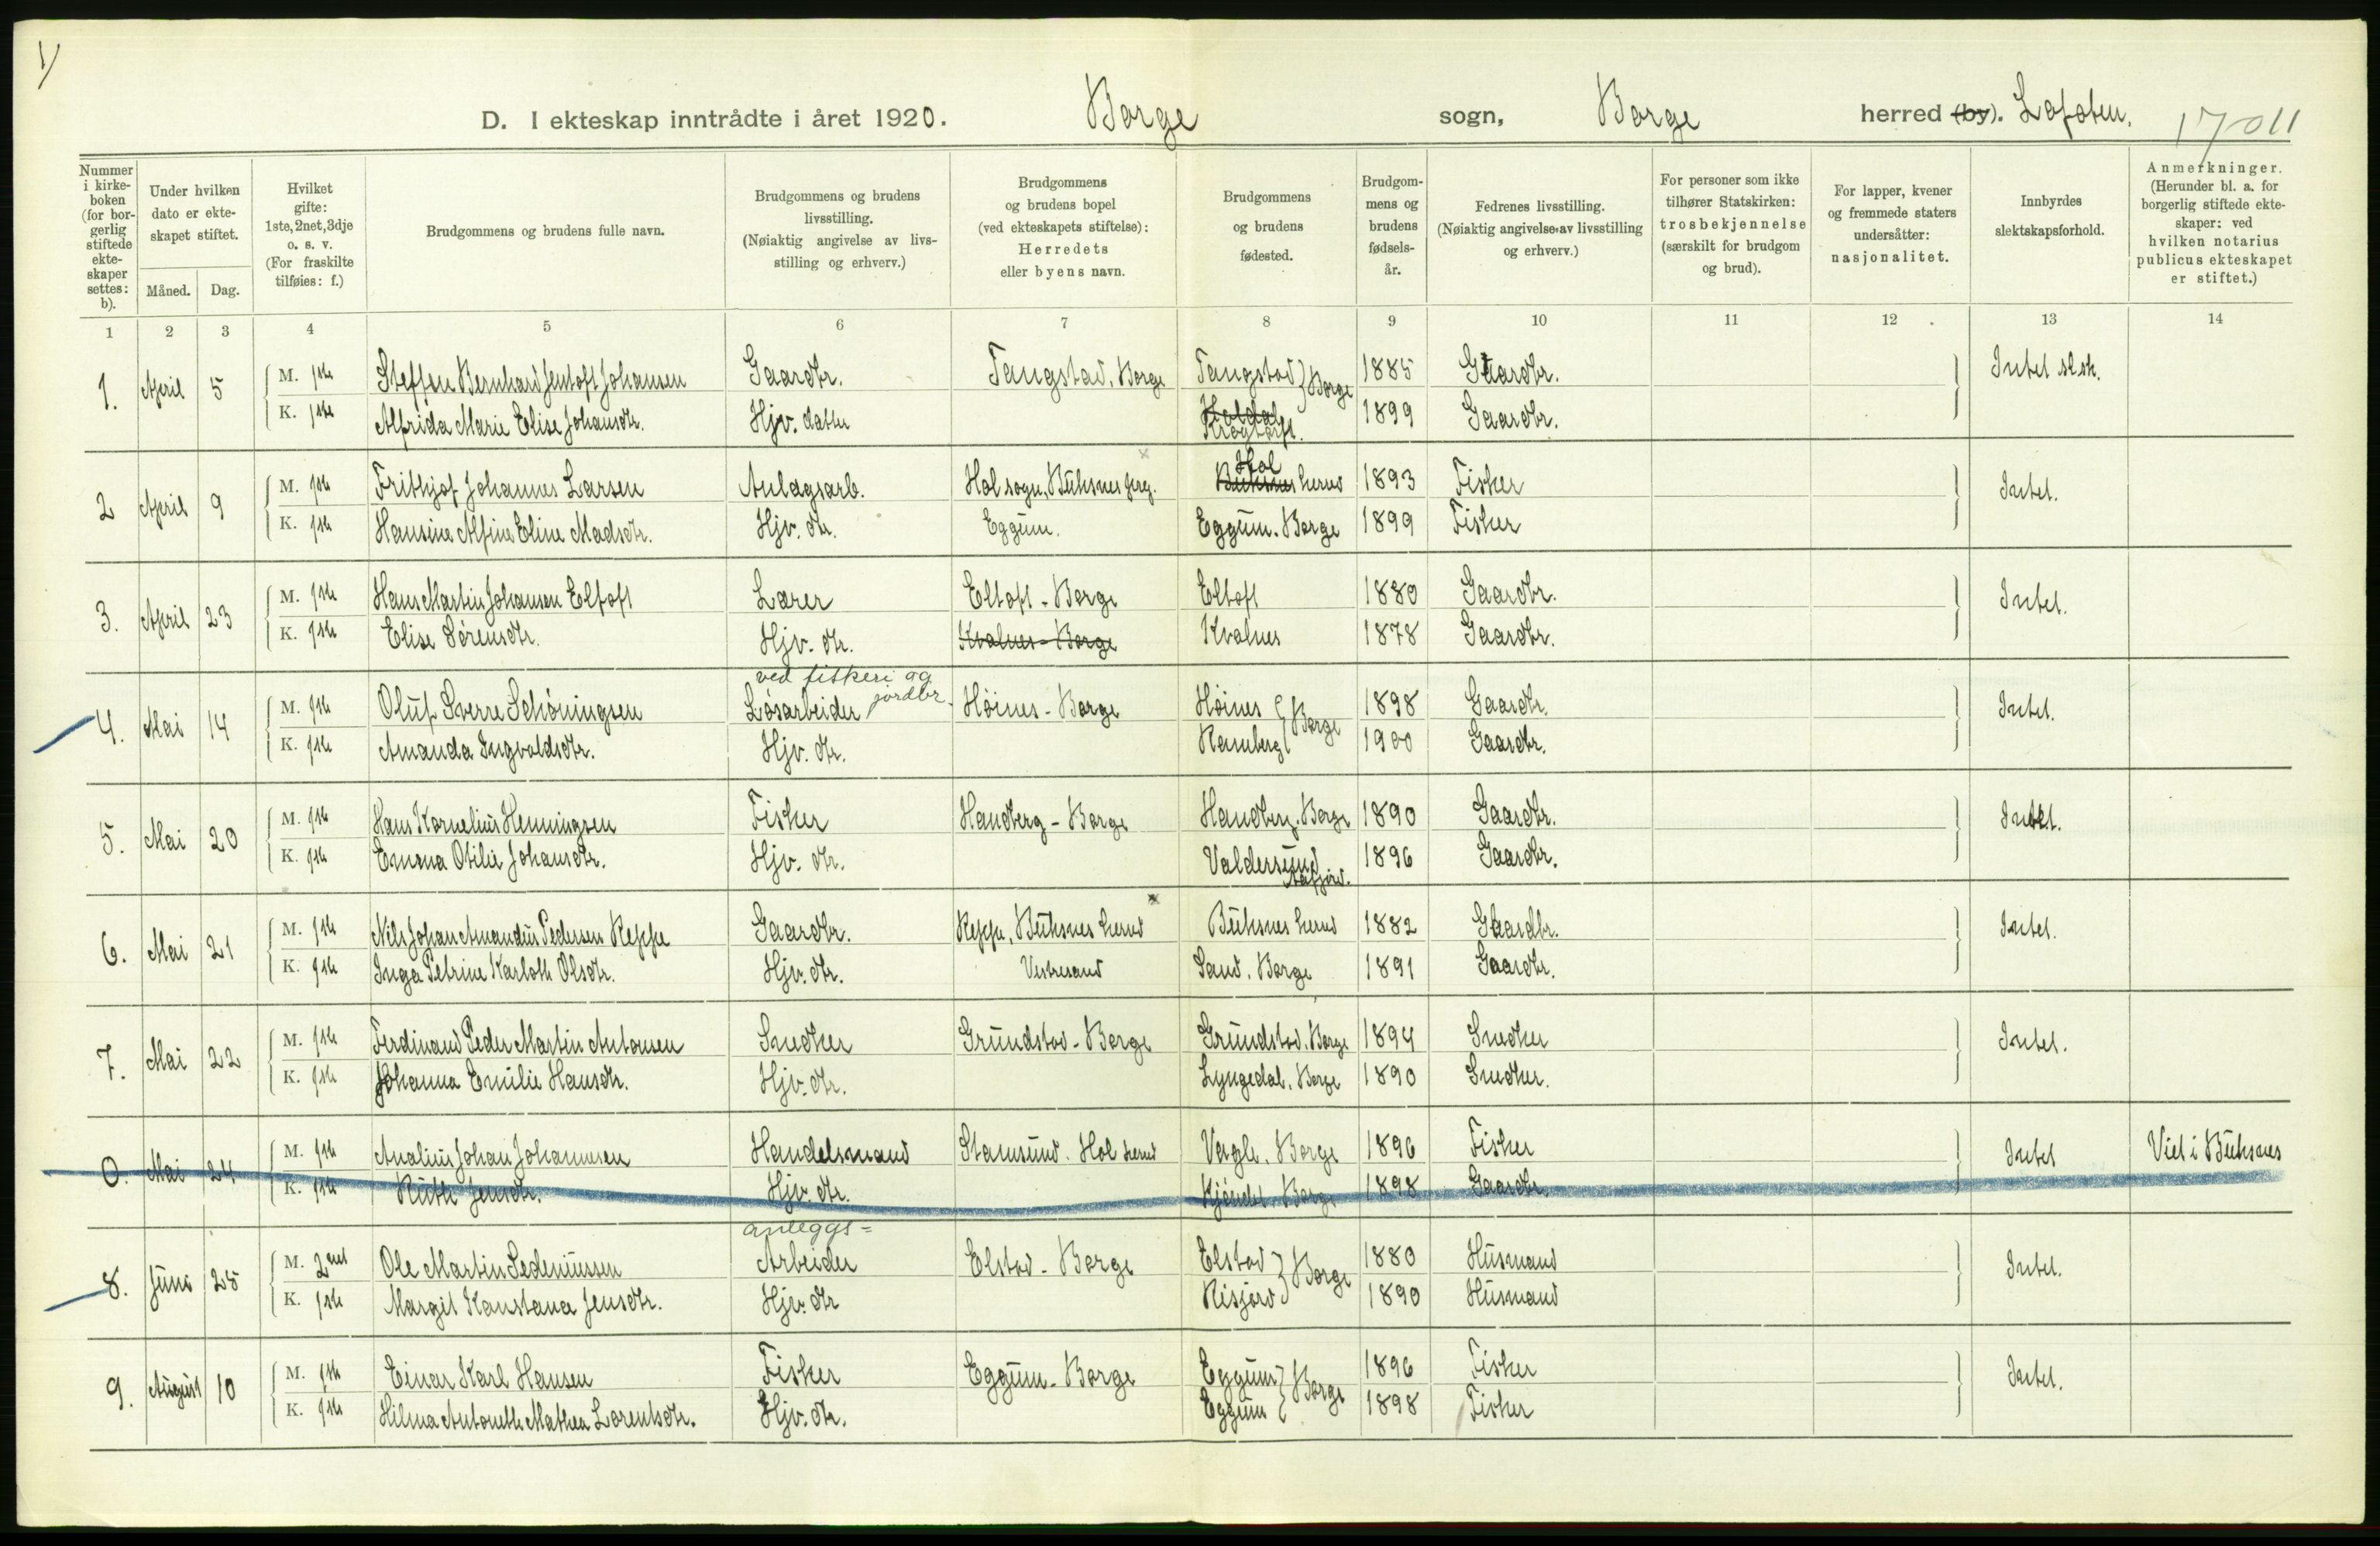 1)
D. I ekteskap inntrådte i året 1920. Borge sogn, Borge herred (by). Lofoten. 17011
Nummer i kirke-boken (for bor-gerlig stiftede ekte-skaper settes: b).
Under hvilken dato er ekte-skapet stiftet.
Måned. Dag.
Hvilket gifte: 1ste, 2net, 3dje o. s. v. (For fraskilte tilføies: f.)
Brudgommens og brudens fulle navn.
Brudgommens og brudens livsstilling. (Nøiaktig angivelse av livs-stilling og erhverv.)
Brudgommens og brudens bopel (ved ekteskapets stiftelse): Herredets eller byens navn.
Brudgommens og brudens fødested.
Brudgom-mens og brudens fødsels-år.
Fedrenes livsstilling. (Nøiaktig angivelse av livsstilling og erhverv.)
For personer som ikke tilhører Statskirken: trosbekjennelse (særskilt for brudgom og brud).
For lapper, kvener og fremmede staters undersåtter: nasjonalitet.
Innbyrdes slektskapsforhold.
Anmerkninger. (Herunder bl. a. for borgerlig stiftede ekte-skaper: ved hvilken notarius publicus ekteskapet er stiftet.)
1 2 3 4 5 6 7 8 9 10 11 12 13 14
1. April 5 M. 1ste Steffen Bernhard Jentoft Johansen Gaardbr. Tangstad, Borge Tangstad } Borge 1885 Gaardbr. Intet slsk.
K. 1ste Alfrida Marie Elise Johansdtr. Hjv. datter 1899 Gaardbr.
2 April 9 M. 1ste Frithjof Johannes Larsen Anlagsarb. Hol sogn, Buksnes prg. Hol Buksnes herred 1893 Fisker Intet.
K. 1ste Hansine Alfine Eline Madsdtr. Hjv. dtr. Eggum. Eggum. Borge 1899 Fisker
3. April 23 M. 1ste Hans Martin Johansen Eltoft Lærer Eltoft - Borge Eltoft 1880 Gaardbr. Intet.
K. 1ste Elise Sørensdtr. Hjv. dtr. Kvalnes - Borge Kvalnes 1878 Gaardbr.
ved fiskeri og jordbr.
4. Mai 14 M. 1ste Oluf Sverre Schöningsen Løsarbeider Höines - Borge Höines } Borge 1898 Gaardbr. Intet.
K. 1ste Amanda Ingvoldsdtr. Hjv. dtr. Ramberg 1900 Gaardbr.
5. Mai 20 M. 1ste Hans Kornelius Henningsen Fisker Handberg - Borge Handberg. Borge 1890 Gaardbr. Intet.
K. 1ste Emma Otilie Johansdtr. Hjv. dtr. Valdersund 1896 Gaardbr.
6. Mai 21 M. 1ste Nils Johan Amandus Pedersen Reppe Gaardbr. Reppe, Buksnes herred Buksnes herred 1882 Gaardbr. Intet.
K. 1ste Inga Petrine Karloth Olsdtr. Hjv. dtr. Vestresand Sand, Borge 1891 Gaardbr.
7. Mai 22 M. 1ste Ferdinand Peder Martin Antonsen Snedker Grundstad - Borge Grundstad, Borge 1894 Snedker Intet.
K. 1ste Johanna Emilie Hansdtr. Hjv. dtr. Lyngedal, Borge 1890 Snedker.
0. Mai 24 M. 1ste Analius Johan Johannesen Handelsmand Stamsund. Hol herred Borge 1896 Fisker Intet Viet i Buksnes
K. 1ste Ruth Jensdtr. Hjv. dtr. Borge 1898 Gaardbr.
anleggs=
8. Juni 25 M. 2net Ole Martin Sedeniussen Arbeider Elstad - Borge Elstad } Borge 1880 Husmand Intet.
K. 1ste Margit Konstance Jensdtr. Hjv. dtr Risjord 1890 Husmand
9. August 10 M. 1ste Einar Karl Hansen Fisker Eggum - Borge Eggum } Borge 1896 Fisker Intet.
K. 1ste Hilma Antonette Mathea Lorentsdtr. Hjv. dtr. Eggum 1898 Fisker